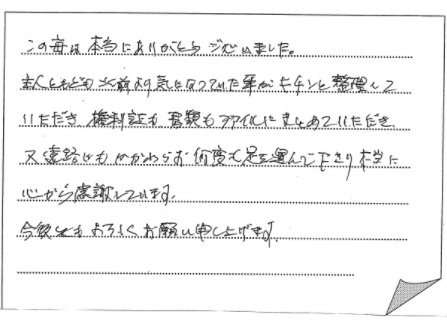 この毎は本当にありがとうございました。
まくともども以前より気になっていた事がキチンと整理して
いただき、権利証も書類もファイルにまとめていただき、
又遠路にもかかわらず何度も足を運んで下さり本当に
心から感謝しています。
今後ともよろしくお願い申し上げます。